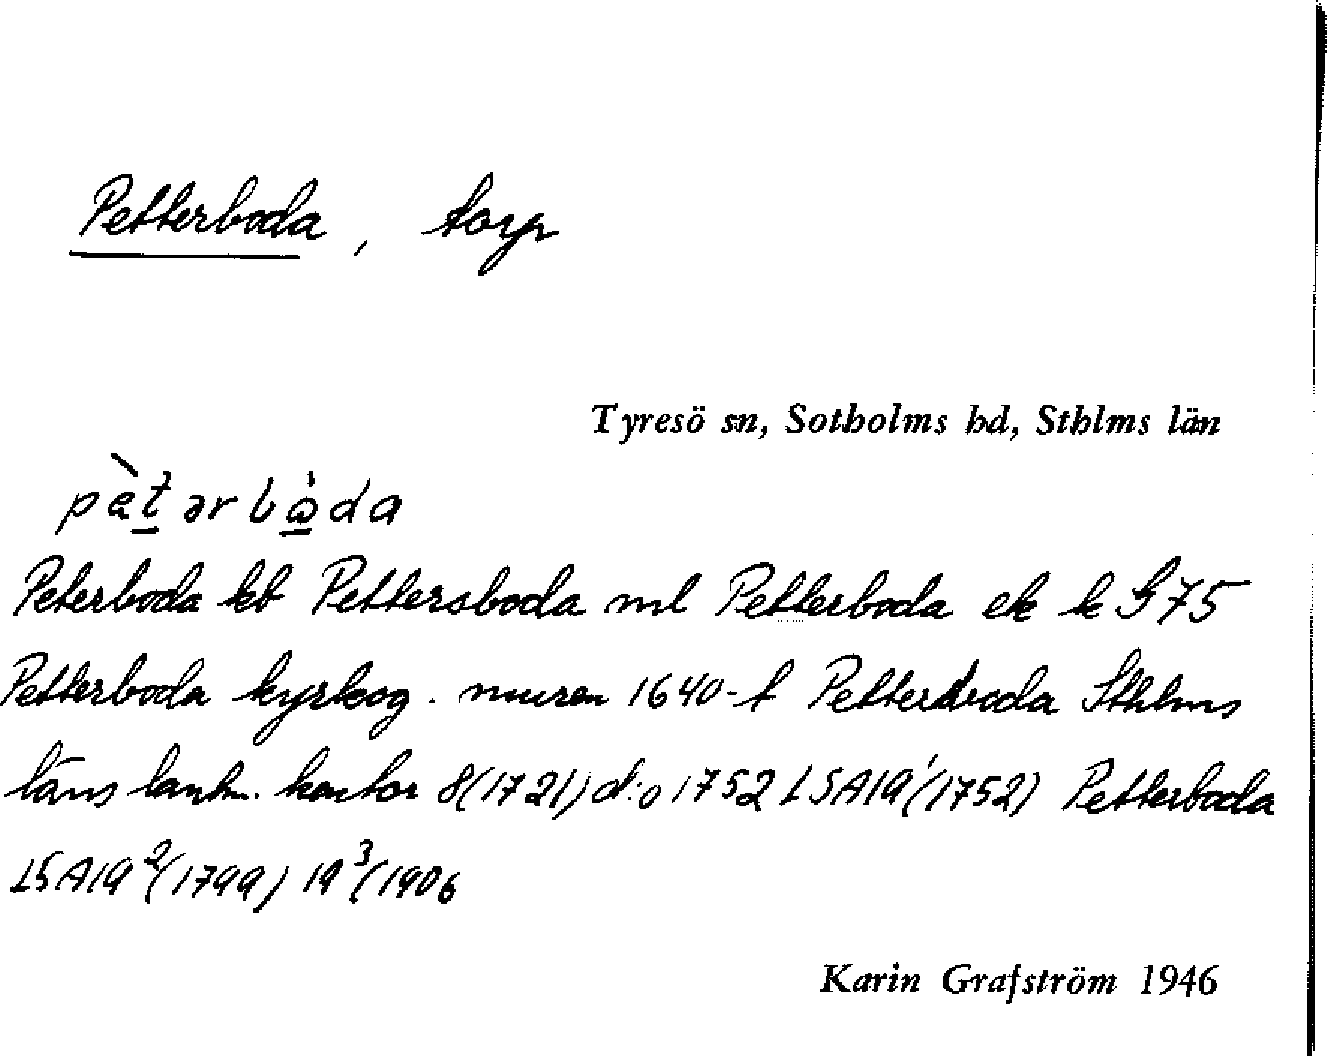 Petterboda, torp
Tyresö sn, Sotholms hd, Sthlms län
pètərbωda
Peterboda kb Pettersboda ml Petterboda ek k G75
Petterboda kyrkog. muren 1640-t Petterboda Sthlms
läns lantm. kontor 8(1721) d:o 1752 LSA19¹(1752) Petterboda
LSA19²(1799) 19³(1906
Karin Grafström 1946